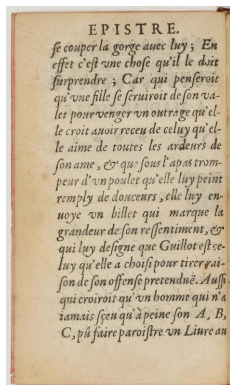 EPISTRE.
se couper la gorge auec luy ; En
effet c'est vne chose qu'il le doit
surprendre ; Car qui penseroit
qu'vne fille se seruiroit de son va-
let pour venger vn outrage qu'el-
le croit auoir receu de celuy qu'el-
le aime de toutes les ardeurs de
son ame, & que sous l'apas trom-
peur d'vn poulet qu'elle luy peint
remply de douceurs, elle luy en-
uoye vn billet qui marque la
grandeur de son ressentiment, &
qui luy designe que Guillot est ce-
luy qu'elle a choisi pour tirer rai-
son de son offense pretenduë. Aussi
qui croiroit qu'vn homme qui n'a
iamais sçeu qu'à peine son A, B,
C, pû faire paroistre vn Liure au